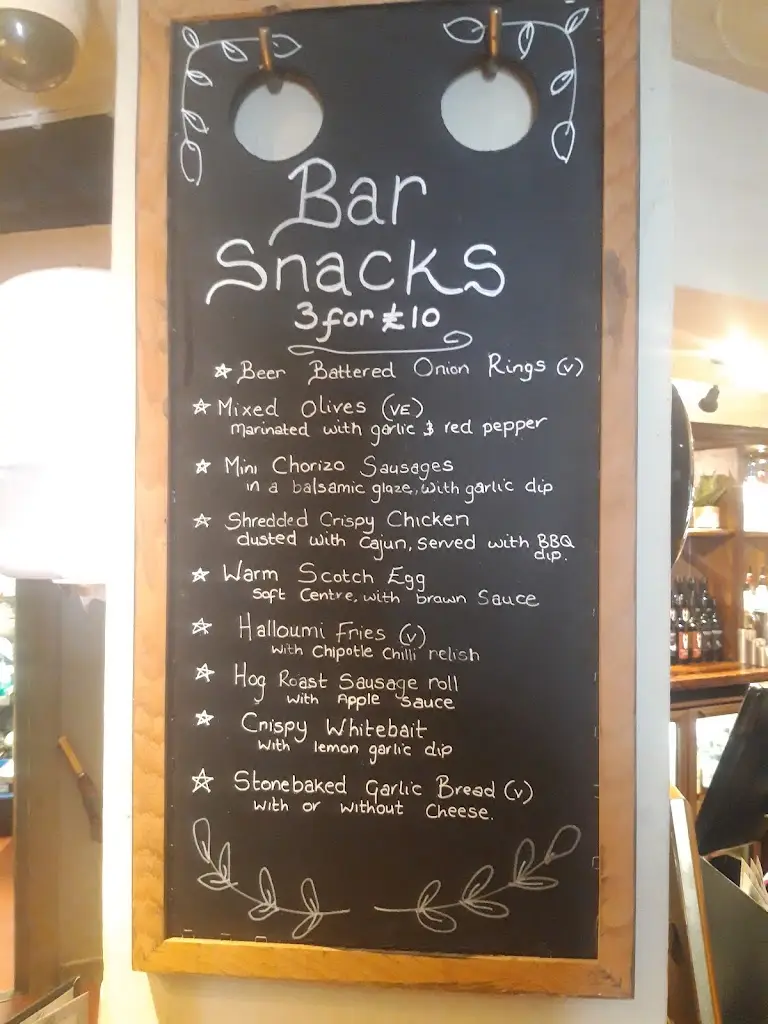 Bar
Snacks
3 for £10
☆ Beer Battered Onion Rings (v)
☆ Mixed Olives (VE)
marinated with garlic & red pepper
☆ Mini Chorizo Sausages
in a balsamic glaze, with garlic dip
☆ Shredded Crispy Chicken
dusted with Cajun, served with BBQ
dip.
☆ Warm Scotch Egg
Soft Centre, with brown Sauce
☆ Halloumi Fries (v)
with Chipotle Chilli relish
☆ Hog Roast Sausage roll
with Apple sauce
☆ Crispy Whitebait
with lemon garlic dip
☆ Stonebaked Garlic Bread (v)
with or without Cheese.